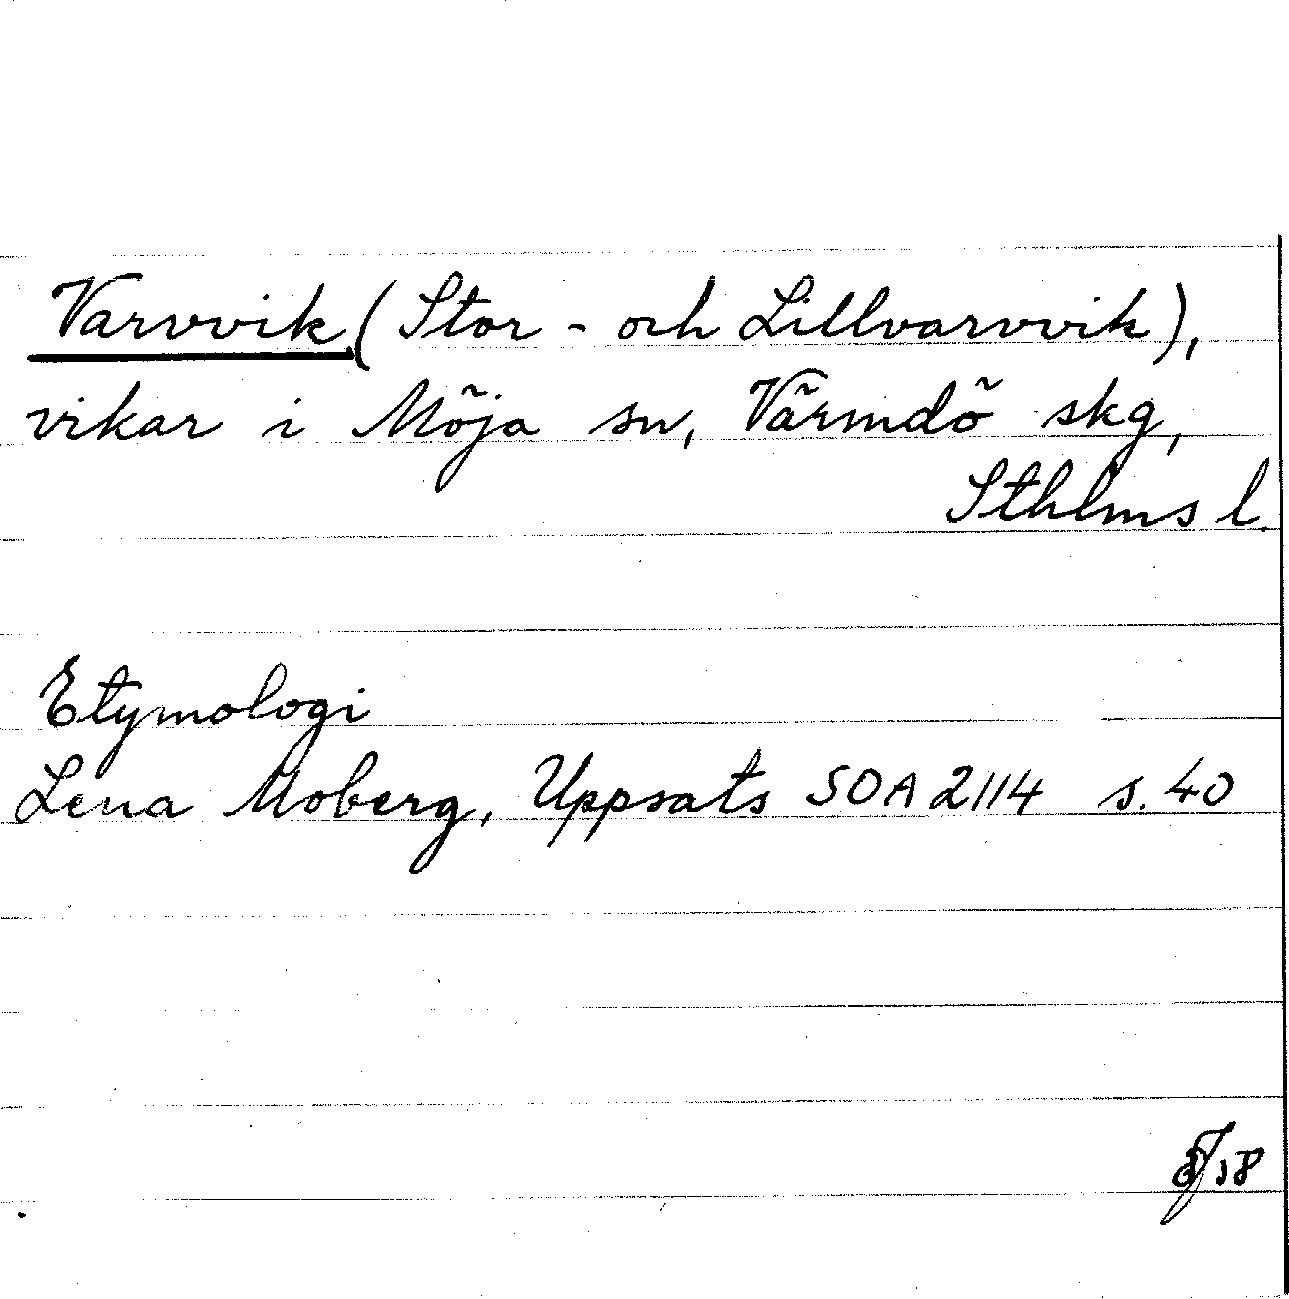 Varvvik (Stor- och Lillvarvvik),
vikar i Möja sn, Värmdö skg,
Sthlms l.
Etymologi
Lena Moberg, Uppsats SOA 2114 s. 40